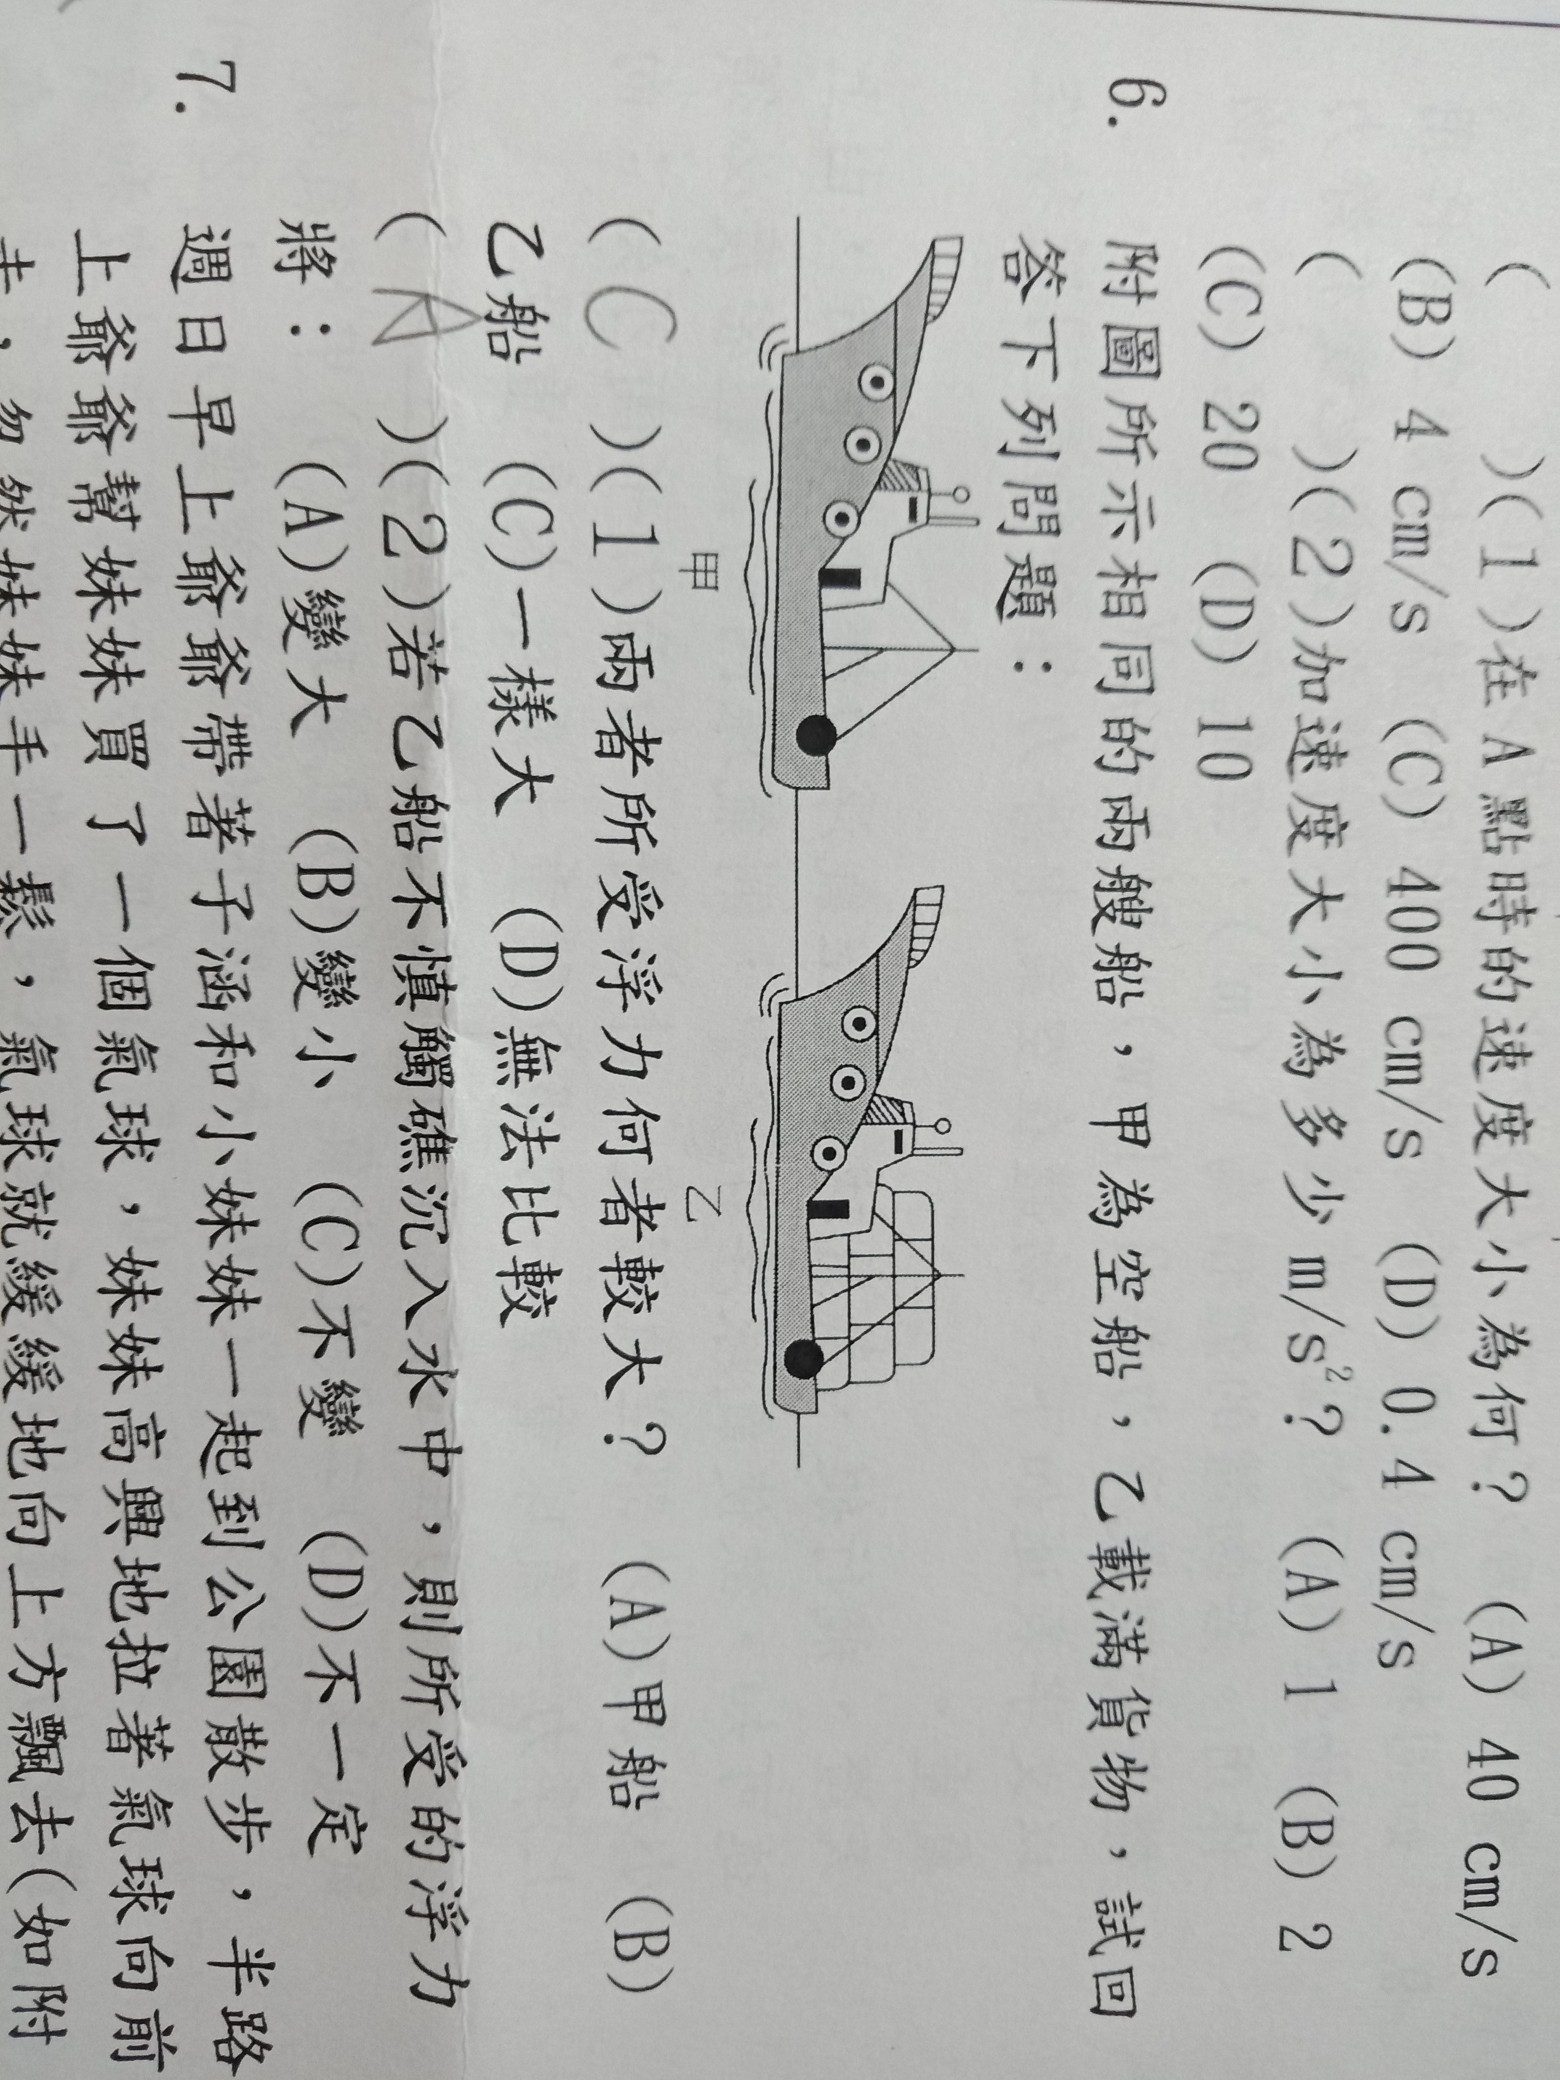 (　　)(1)在 A 點時的速度大小為何？　(A) 40 cm/s
(B) 4 cm/s　(C) 400 cm/s　(D) 0.4 cm/s
(　　)(2)加速度大小為多少 m/s²？　(A) 1　(B) 2
(C) 20　(D) 10
6.　附圖所示相同的兩艘船，甲為空船，乙載滿貨物，試回
答下列問題：
甲　乙
( C )(1)兩者所受浮力何者較大？　(A)甲船　(B)
乙船　(C)一樣大　(D)無法比較
( A )(2)若乙船不慎觸礁沉入水中，則所受的浮力
將：　(A)變大　(B)變小　(C)不變　(D)不一定
7.　週日早上爺爺帶著子涵和小妹妹一起到公園散步，半路
上爺爺幫妹妹買了一個氣球，妹妹高興地拉著氣球向前
走，忽然妹妹手一鬆，氣球就緩緩地向上方飄去(如附